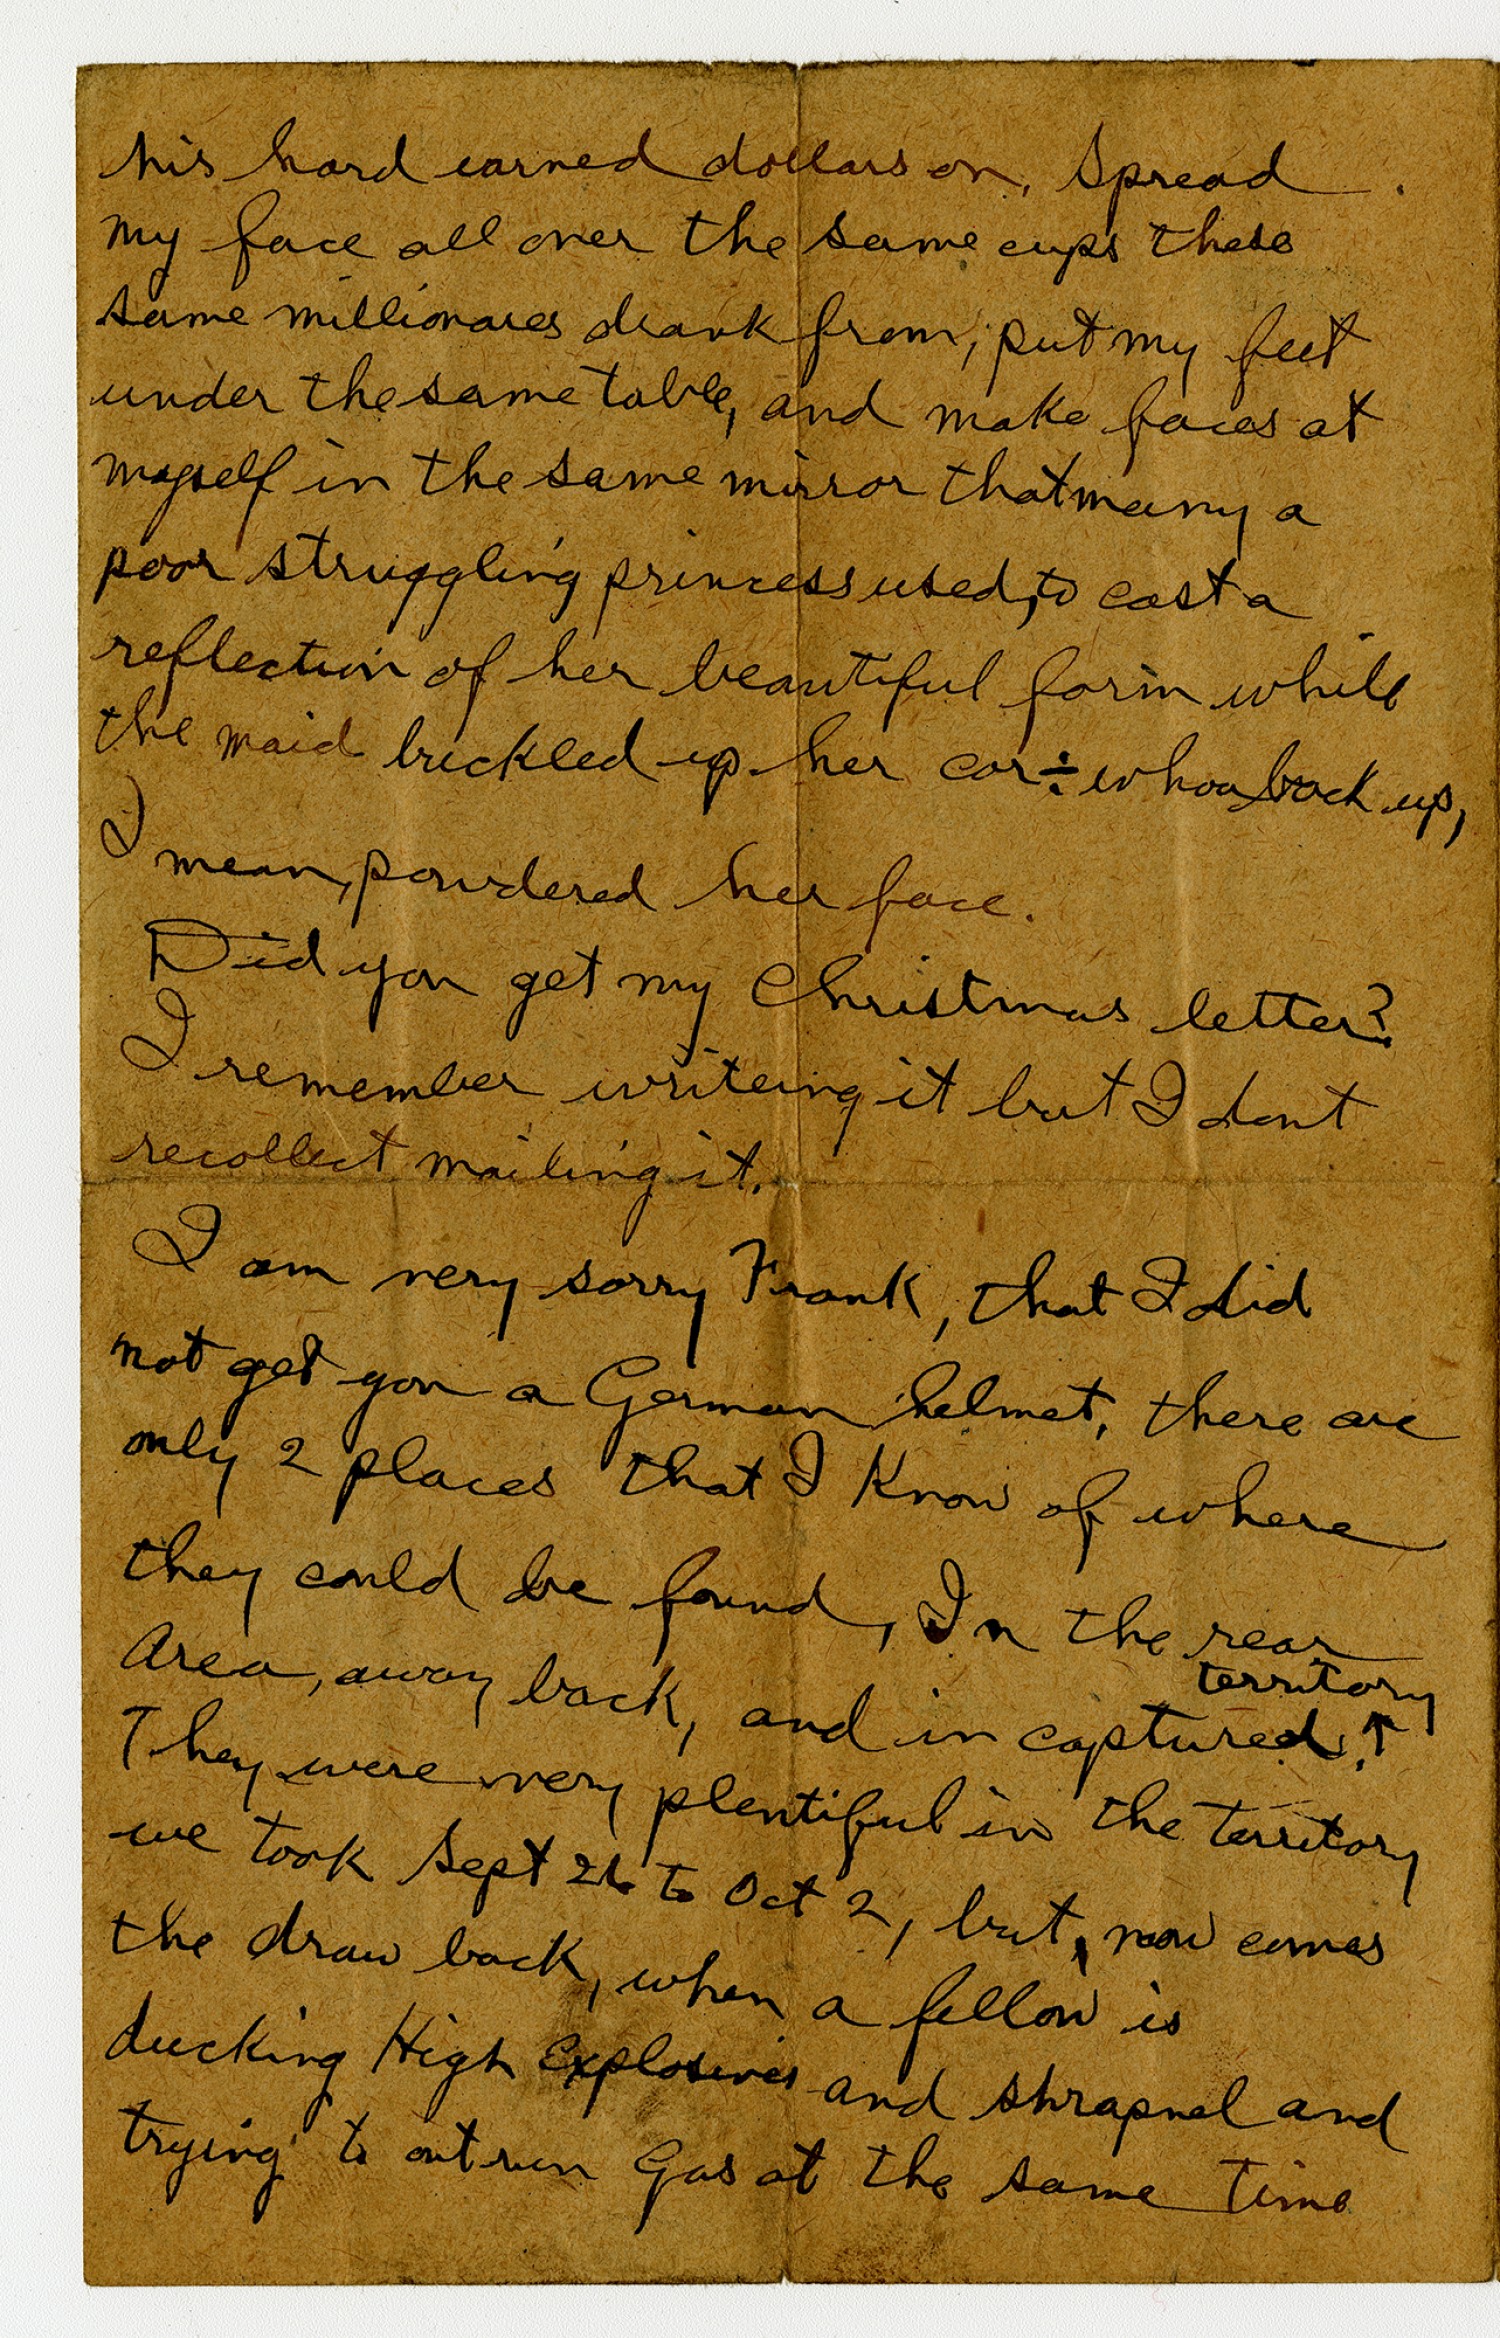 his hard earned dollars on. Spread
my face all over the same cups these
same millionares drank from, put my feet
under the same table, and make faces at
myself in the same mirror that many a
poor struggling princess used, to cast a
reflection of her beautiful form while
the maid buckled up her cor÷ whoa back up,
I mean, powdered her face.
Did you get my Christmas letter?
I remember writeing it but I dont
recollect mailing it.
I am very sorry Frank, that I did
not get you a German helmet, there are
only 2 places that I Know of where
they could be found, In the rear
territory
Area, away back, and in captured.↑
They were very plentiful in the territory
we took Sept 26 to Oct 2, but, now comes
the draw back, when a fellow is
ducking High Explosives and shrapnel and
trying to outrun Gas at the same time